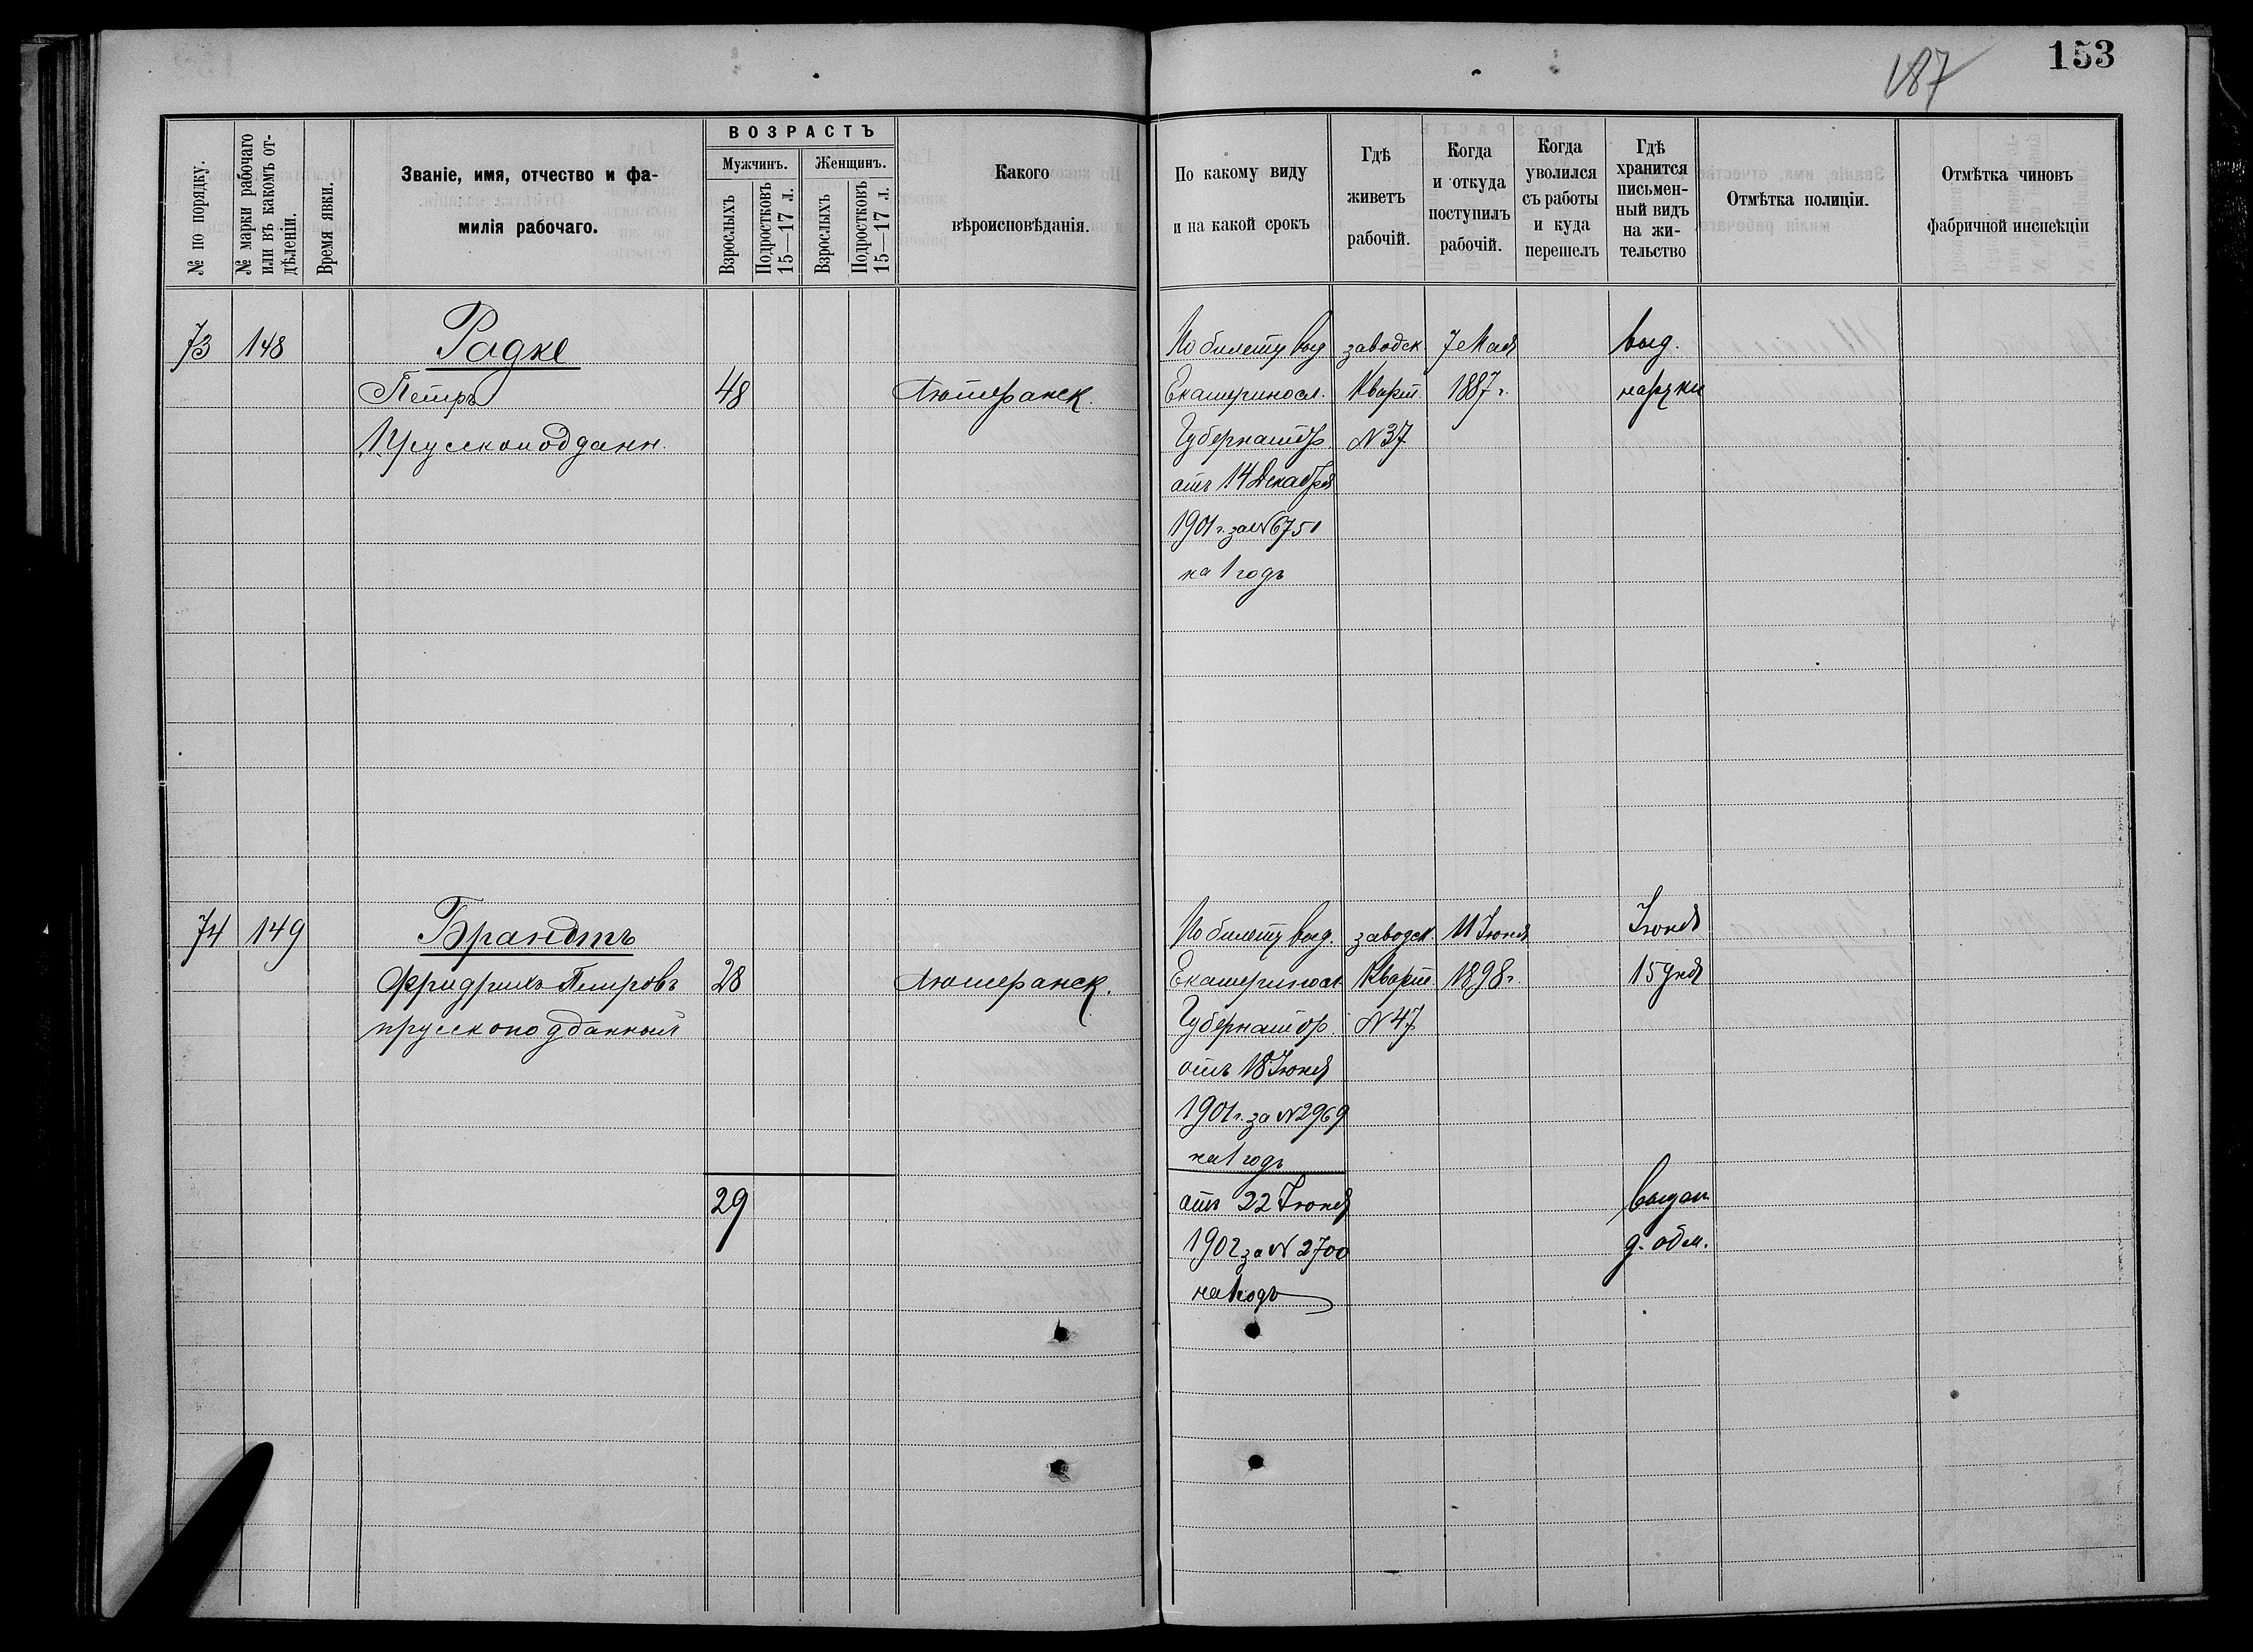 187
153
№ по порядку.
№ марки рабочаго или въ какомъ от-дѣленіи.
Время явки.
Званіе, имя, отчество и фа-
милія рабочаго.
ВОЗРАСТЪ
Мужчинъ.
Женщинъ.
Взрослыхъ
Подростковъ 15—17 л.
Взрослыхъ
Подростковъ 15—17 л.
Какого
вѣроисповѣданія.
По какому виду
и на какой срокъ
Гдѣ
живетъ
рабочій.
Когда
и откуда
поступилъ
рабочій.
Когда
уволился
съ работы
и куда
перешелъ
Гдѣ
хранится
письмен-
ный видъ
на жи-
тельство
Отмѣтка полиціи.
Отмѣтка чиновъ
фабричной инспекціи
73 148 Радке По билету выд. заводск. 7 Мая выд.
Петръ 48 Лютеранск. Екатериносл. Кварт. 1887 г. на руки
Прусскоподданн. Губернатор. № 37
отъ 14 Декабря
1901 г. за № 6751
на 1 годъ
74 149 Брандтъ По билету выд. заводск. 11 Іюня Іюня
Фридрихъ Петровъ 28 Лютеранск. Екатериносл. Кварт. 1898 г. 15 дня
прусскоподданный Губернатор. № 47
отъ 18 Іюня
1901 г. за № 2969
на 1 годъ
29 отъ 22 Іюня выдан
1902 за № 2700 д. обм.
на 1 годъ